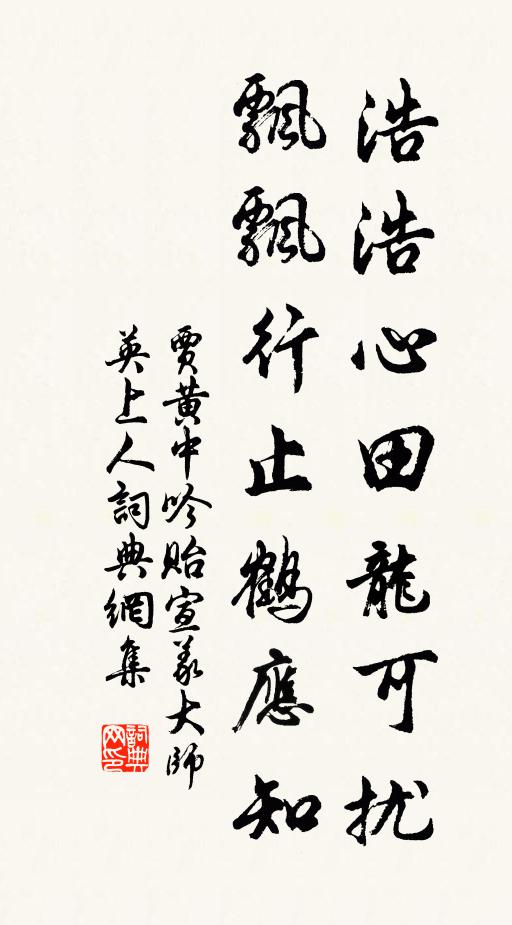 浩浩心田龍可扰
飄飄行止鶴應知
賈黄中吟貽宣義大師
英上人詞典網集
詞典网印